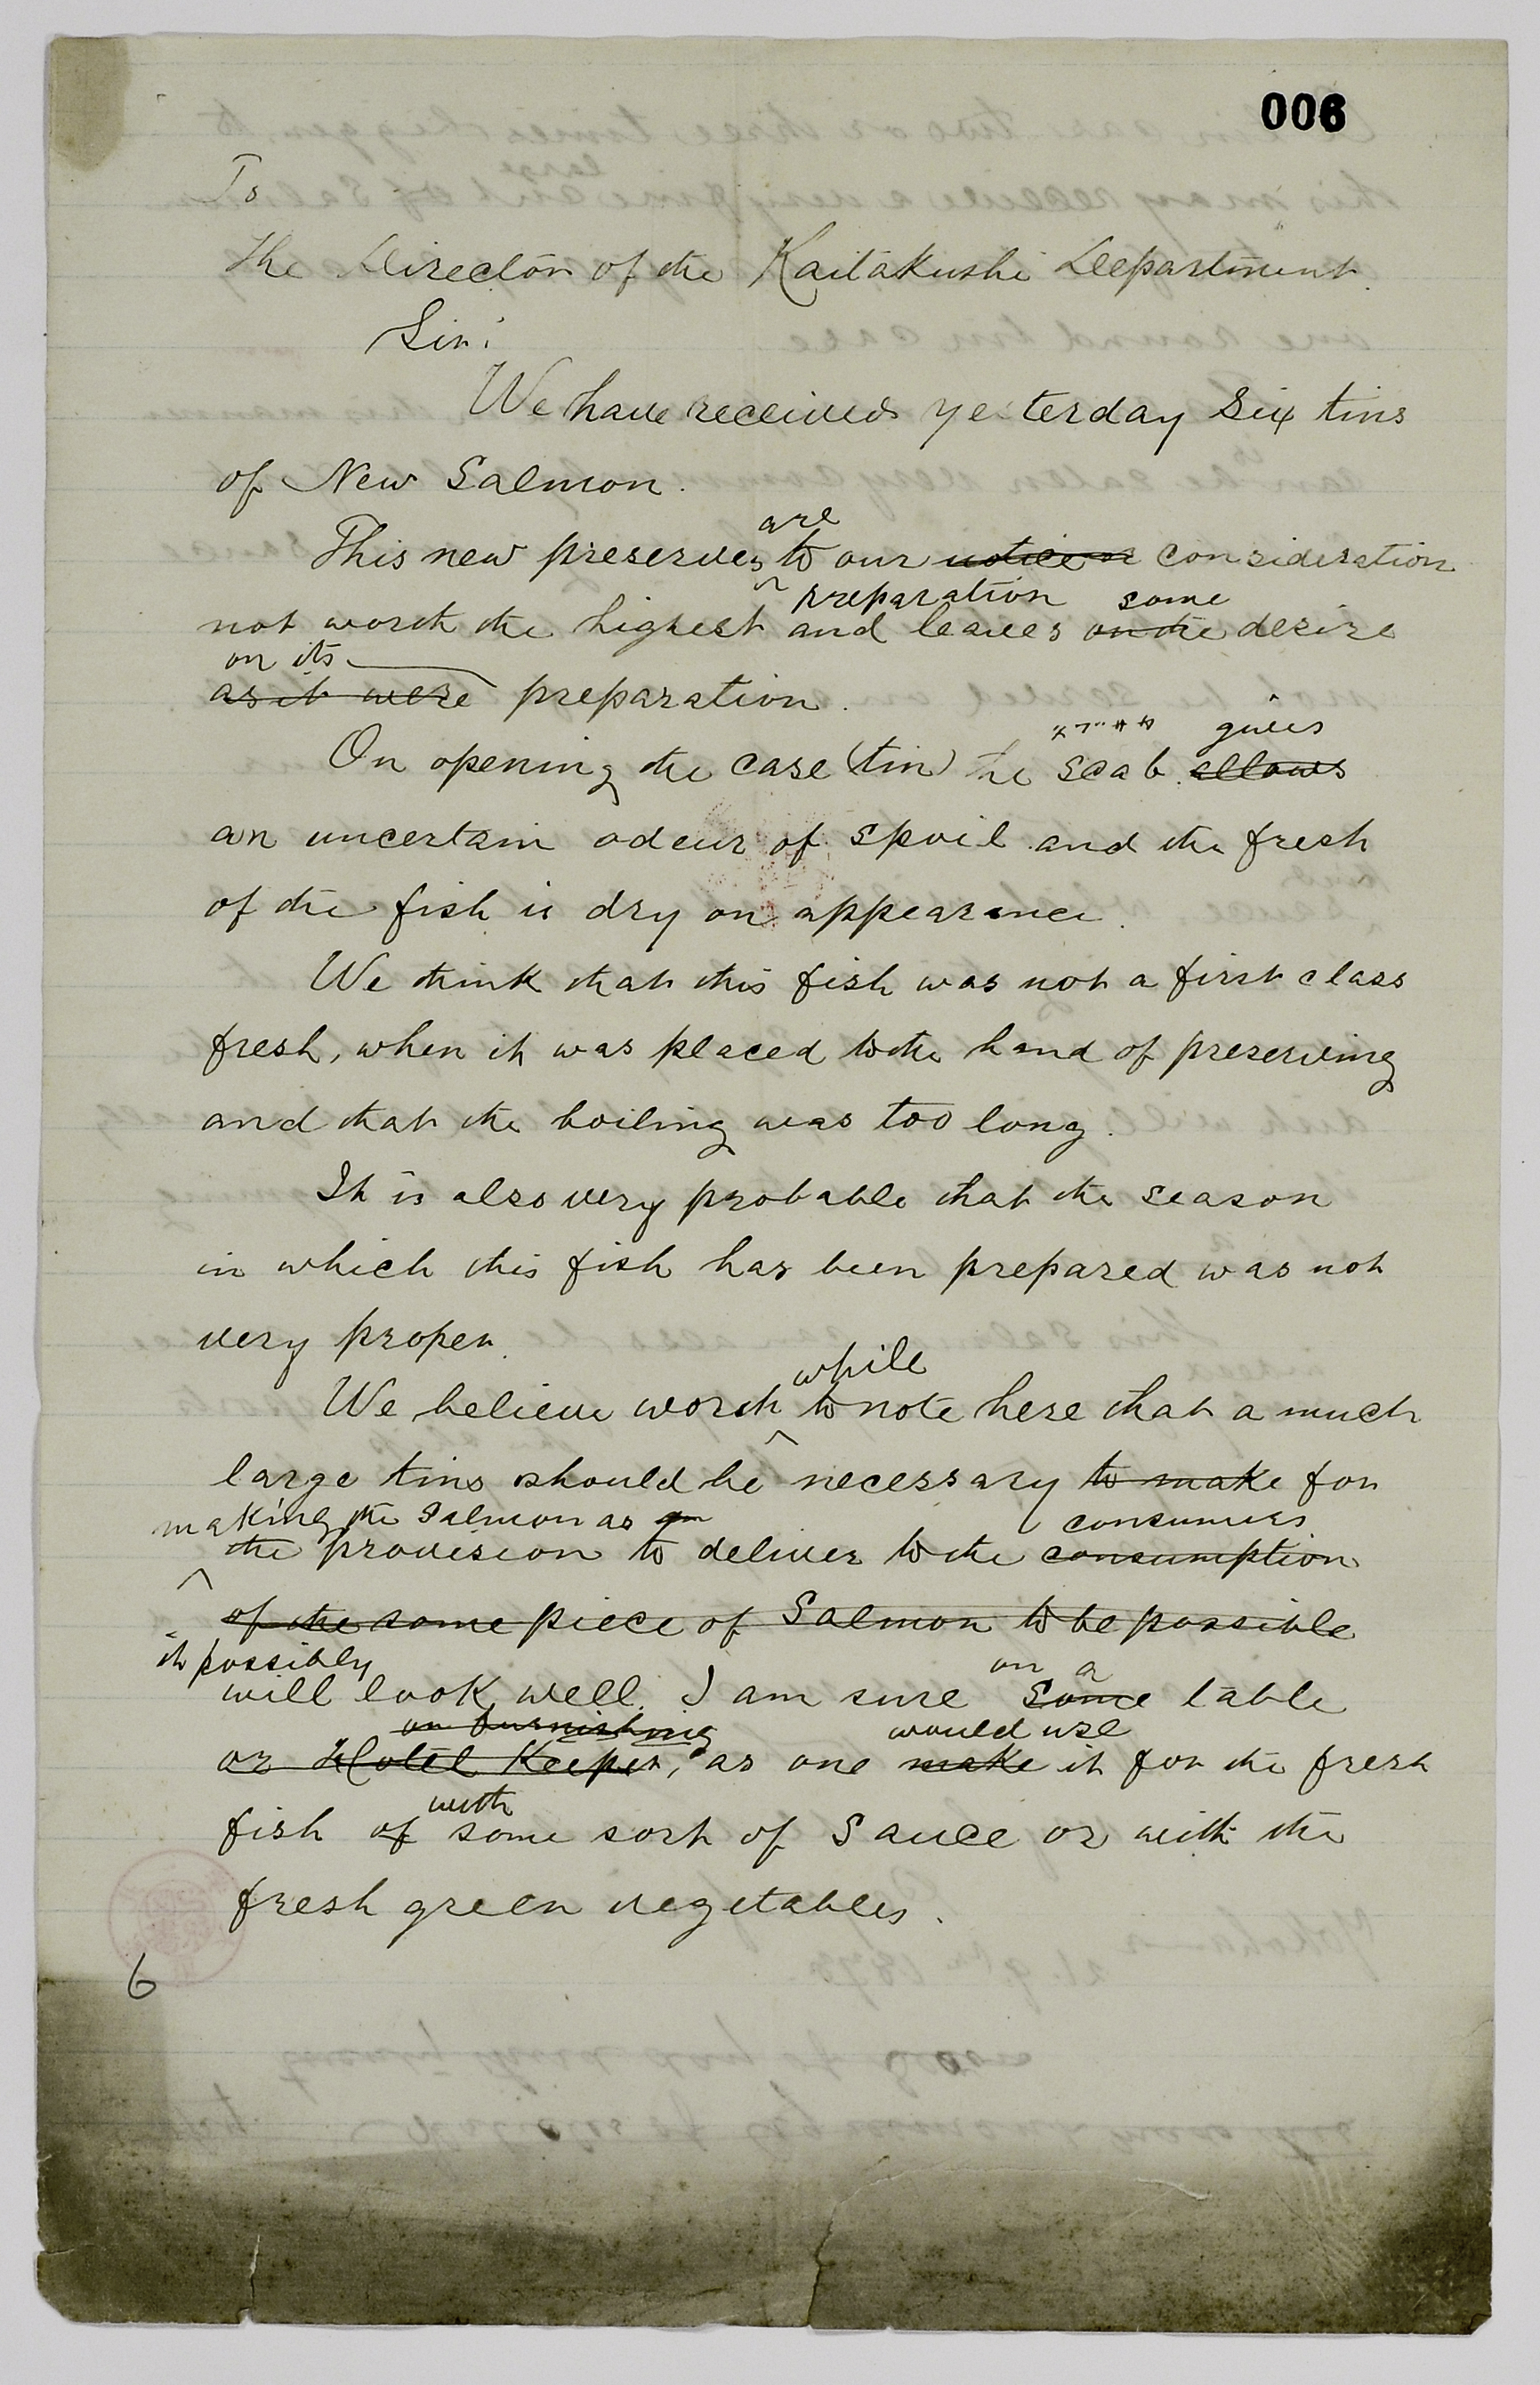 006
To
The Director of the Kaitakushi Department.
Sir:
We have received yesterday Six tins
of New Salmon.
are
This new preserves to our notice or consideration
preparation some
not worth the highest and leaves on the desire
on its
as it were preparation.
gives
On opening the case (tin) the scab allows
an uncertain odeur of spoil and the fresh
of the fish is dry on appearance.
We think that this fish was not a first class
fresh, when it was placed to the hand of preserving
and that the boiling was too long.
It is also very probable that the season
in which this fish has been prepared was not
very proper.
while
We believe worth to note here that a much
large tins should be necessary to make for
making the Salmon as consumers
the provision to deliver to the consumption
of the some piece of Salmon to be possible
it possibly on a
will look well. I am sure some table
on burnishing would use
or Hotel Keeper, as one make it for the fresh
with
fish of some sort of Sauce or with the
fresh green vegetables.
6